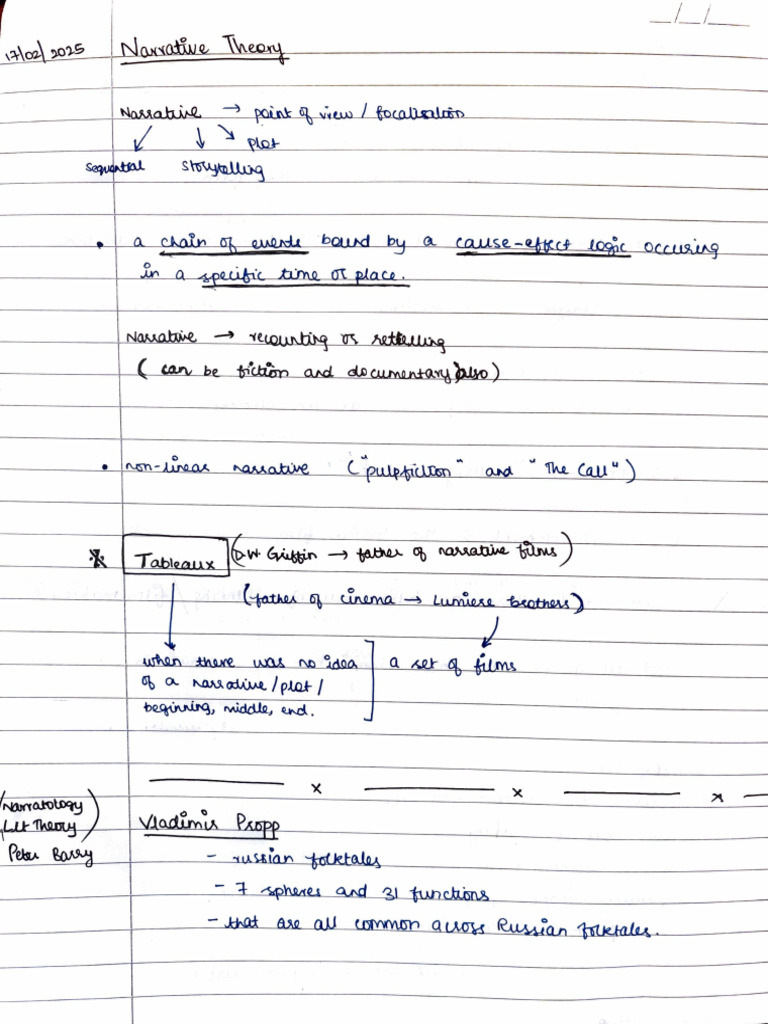 __/__/__
17/02/2025 Narrative Theory
Narrative → point of view / focalisation
↙ ↓ ↘ plot
sequential storytelling
• a chain of events bound by a cause-effect logic occuring
in a specific time or place.
Narrative → recounting or retelling
( can be fiction and documentary also)
• non-linear narrative ("pulpfiction" and "The Call")
* Tableaux (D.W Griffin → father of narrative films)
(father of cinema → Lumiere brothers)
when there was no idea ] a set of films
of a narrative/plot/
beginning, middle, end.
x x x
(Narratology
Lit Theory)
Peter Barry
Vladimir Propp
- russian folktales
- 7 spheres and 31 functions
- that are all common across Russian folktales.